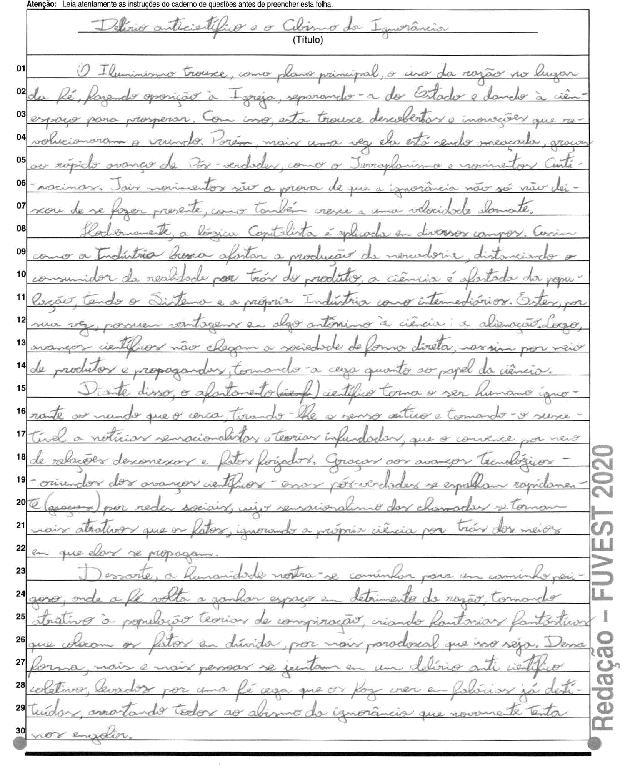 Atenção: Leia atentamente as instruções do caderno de questões antes de preencher esta folha.
Delírio anticientífico e o Abismo da Ignorância
(Título)
01 O Iluminismo trouxe, como plano principal, o uso da razão no lugar
02 da fé, fazendo oposição à Igreja, separando-a do Estado e dando à ciên-
03 espaço para prosperar. Com isso, esta trouxe descobertas e inovações que re-
04 volucionaram o mundo. Porém, mais uma vez ela está sendo ameaçada, graças
05 ao rápido avanço de Pós-verdades, como o Terraplanismo e movimentos Anti-
06 -vacinas. Tais movimentos são a prova de que a ignorância não só não dei-
07 xou de se fazer presente, como também cresce a uma velocidade alarmante.
08 Hodiernamente, a lógica Capitalista é aplicada em diversos campos. Assim
09 como a Indústria busca afastar a produção da mercadoria, distanciando o
10 consumidor da realidade por trás do produto, a ciência é afastada da popu-
11 lação, tendo o Sistema e a própria Indústria como intermediários. Estes, por
12 sua vez, possuem vantagens em algo antônimo à ciência: a alienação. Logo,
13 avanços científicos não chegam a sociedade de forma direta, mas sim por meio
14 de produtos e propagandas, tornando-a cega quanto ao papel da ciência.
15 Diante disso, o afastamento científico torna o ser humano igno-
16 rante ao mundo que o cerca, tirando-lhe o senso crítico e tornando-o susce-
17 tível a notícias sensacionalistas e teorias infundadas, que o convence por meio
18 de relações desconexas e fatos forjados. Graças aos avanços tecnológicos -
19 -oriundos dos avanços científicos - essas pós-verdades se espalham rapidamen-
20 te por redes sociais, cujo sensacionalismo das chamadas se tornam
21 mais atrativos que os fatos, ignorando a própria ciência por trás dos meios
22 em que elas se propagam.
23 Dessarte, a humanidade mostra-se caminhar para um caminho peri-
24 goso, onde a fé volta a ganhar espaço em detrimento da razão, tornando
25 atrativo à população teorias de conspiração, criando fantasias fantásticas
26 que colocam os fatos em dúvida, por mais paradoxal que isso seja. Dessa
27 forma, mais e mais pessoas se juntam em um delírio anti científico
28 coletivo, levados por uma fé cega que os faz crer em falácias já desti-
29 tuídas, arrastando todos ao abismo da ignorância que novamente tenta
30 nos engolir.
Redação – FUVEST 2020